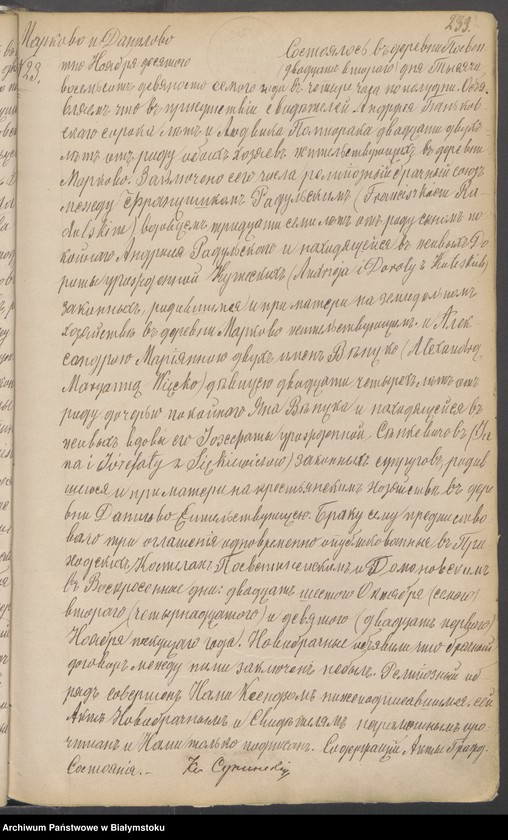 239.
Марково и Данилово
23.
Состоялось въ деревни Посвен-
тне Ноября десятого (двадцать второго) дня Тысяча
восемьсотъ девяносто семого года въ четыре часа пополудни. Объя-
вляемъ что въ присутствіи свидѣтелей Андрея
скаго сорока лѣтъ и Людвика Полторака двадцати двухъ
лѣтъ отъ роду обоихъ хозяевъ жительствующихъ въ деревни
Марково. Заключено сего числа религіозный брачный союзъ
между Францишкомъ Радульскимъ (Franciszkiem Ra-
dulskim) вдовцемъ тридцати семи лѣтъ отъ роду сыномъ по-
койного Андрея Радульского и находящейся въ живыхъ До-
роты урожденной (Andrzeja i Doroty z
законныхъ, родившимся и при матери на земледѣльномъ
хозяйствѣ въ деревни Марково жительствующимъ. и Алек-
сандрою Маріянною двухъ именъ Вѣнцко (Alexandrą
Maryanną Więcko) дѣвицею двадцати четырехъ лѣтъ отъ
роду дочерью покойного Яна Вѣнцка и находящейся въ
живыхъ вдовы его Іозефаты урожденной Сѣнкевичовъ (Ja-
na i Józefaty z Siękiewiczów) законныхъ супруговъ, родив-
шеюся и при матери на крестьянскомъ хозяйствѣ въ дере-
вни Данилово жительствующею. Браку сему предшество-
вало три оглашенія одновременно опубликованные въ При-
ходскихъ Костелахъ Посвентненскимъ и Домановскимъ
въ Воскресенние дни: двадцать шестого Октября (семого)
второго (четырнадцатого) и девятого (двадцать первого)
Ноября текущаго года. Новобрачные объявили что брачный
договоръ между ними заключенъ небылъ. Религіозный об-
рядъ совершенъ Нами Ксендзомъ нижеподписавшимся. сей
Актъ Новобрачнымъ и Свидѣтелямъ неграмотнымъ про-
читанъ и Нами только подписанъ. Содержащій Акты Гражд.
Состоянія. – Кс. Сутинскій
Archiwum Państwowe w Białymstoku